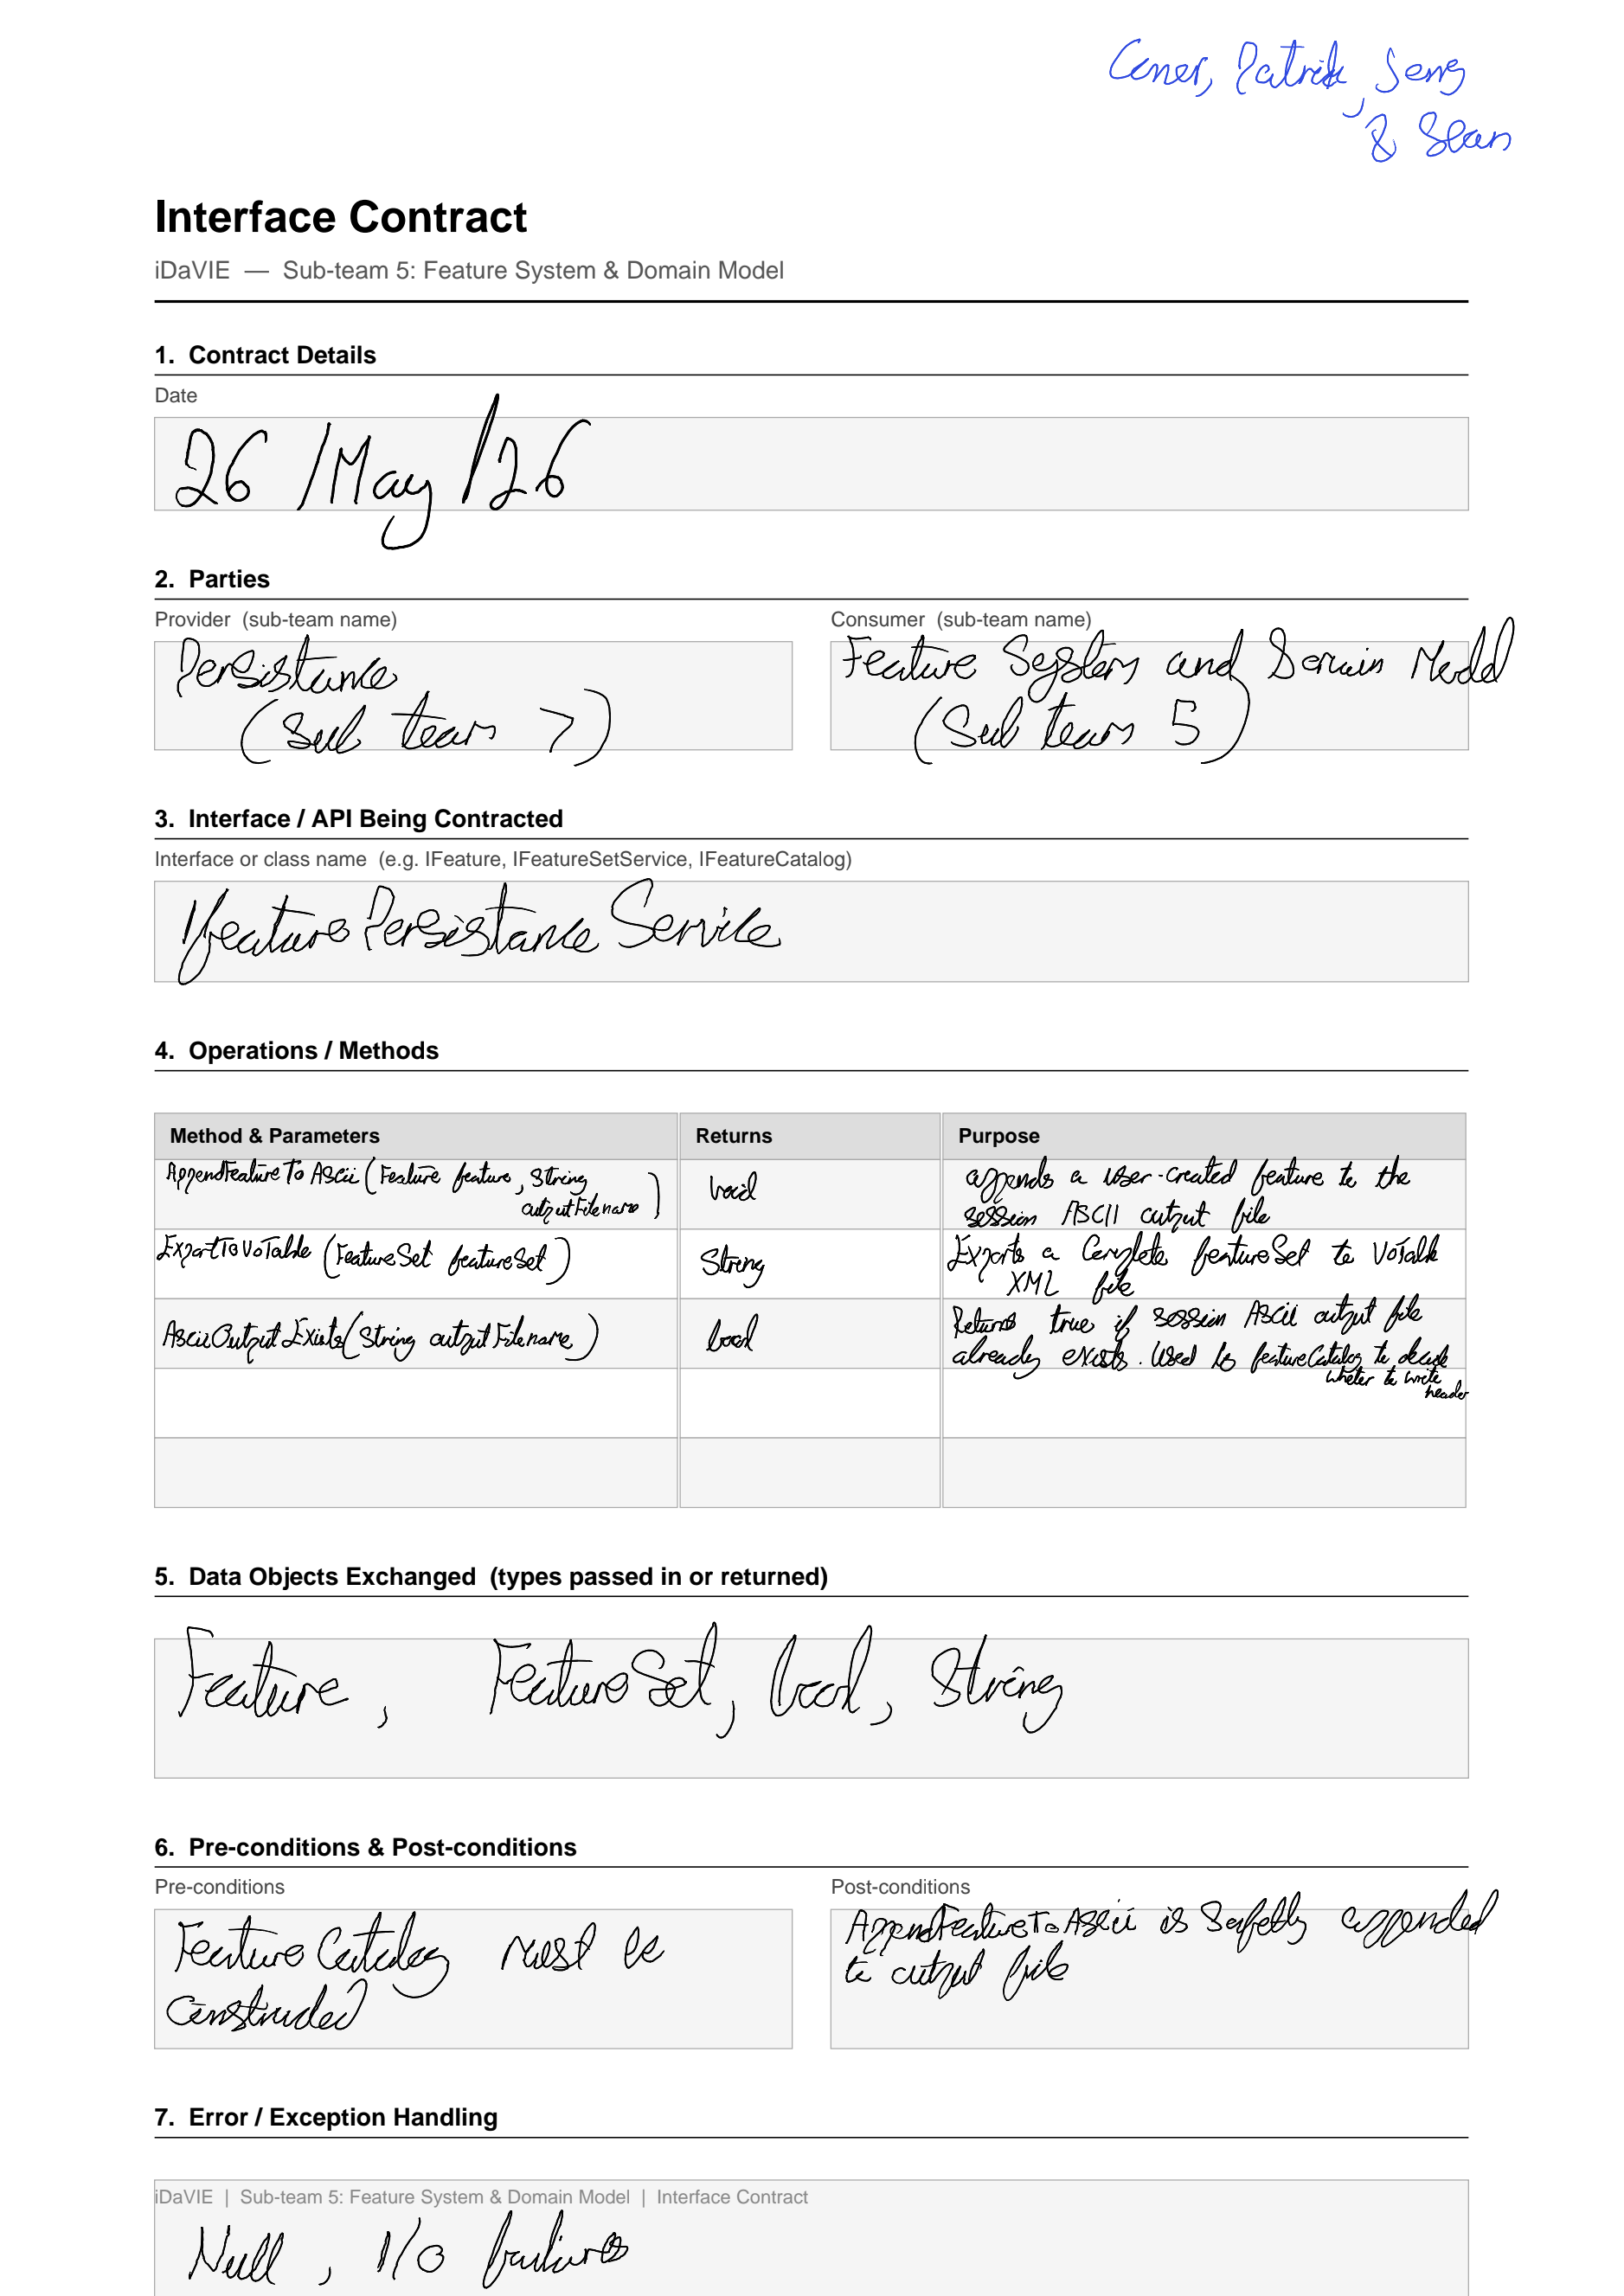 Conor, Patrick, Seng
& Sean
Interface Contract
iDaVIE — Sub-team 5: Feature System & Domain Model
1. Contract Details
Date
26 /May /26
2. Parties
Provider (sub-team name)
Consumer (sub-team name)
Persistance
(Sub team 7)
Feature System and Domain Model
(Sub team 5)
3. Interface / API Being Contracted
Interface or class name (e.g. IFeature, IFeatureSetService, IFeatureCatalog)
IfeaturePersistanceService
4. Operations / Methods
Method & Parameters Returns Purpose
AppendFeatureToAscii (Feature feature, String
outputFilename)
void
appends a user-created feature to the
session ASCII output file
ExportToVoTable (FeatureSet featureSet)
String
Exports a Complete featureSet to VoTable
XML file
AsciiOutputExists(String outputFilename)
bool
Returns true if session ASCII output file
already exists. Used by featureCatalog to decide
wheter to write
header
5. Data Objects Exchanged (types passed in or returned)
Feature, FeatureSet, bool, String
6. Pre-conditions & Post-conditions
Pre-conditions
Post-conditions
FeatureCatalog must be
constructed
AppendFeatureToAscii is Safelly appended
to output file
7. Error / Exception Handling
iDaVIE | Sub-team 5: Feature System & Domain Model | Interface Contract
Null, I/O failures